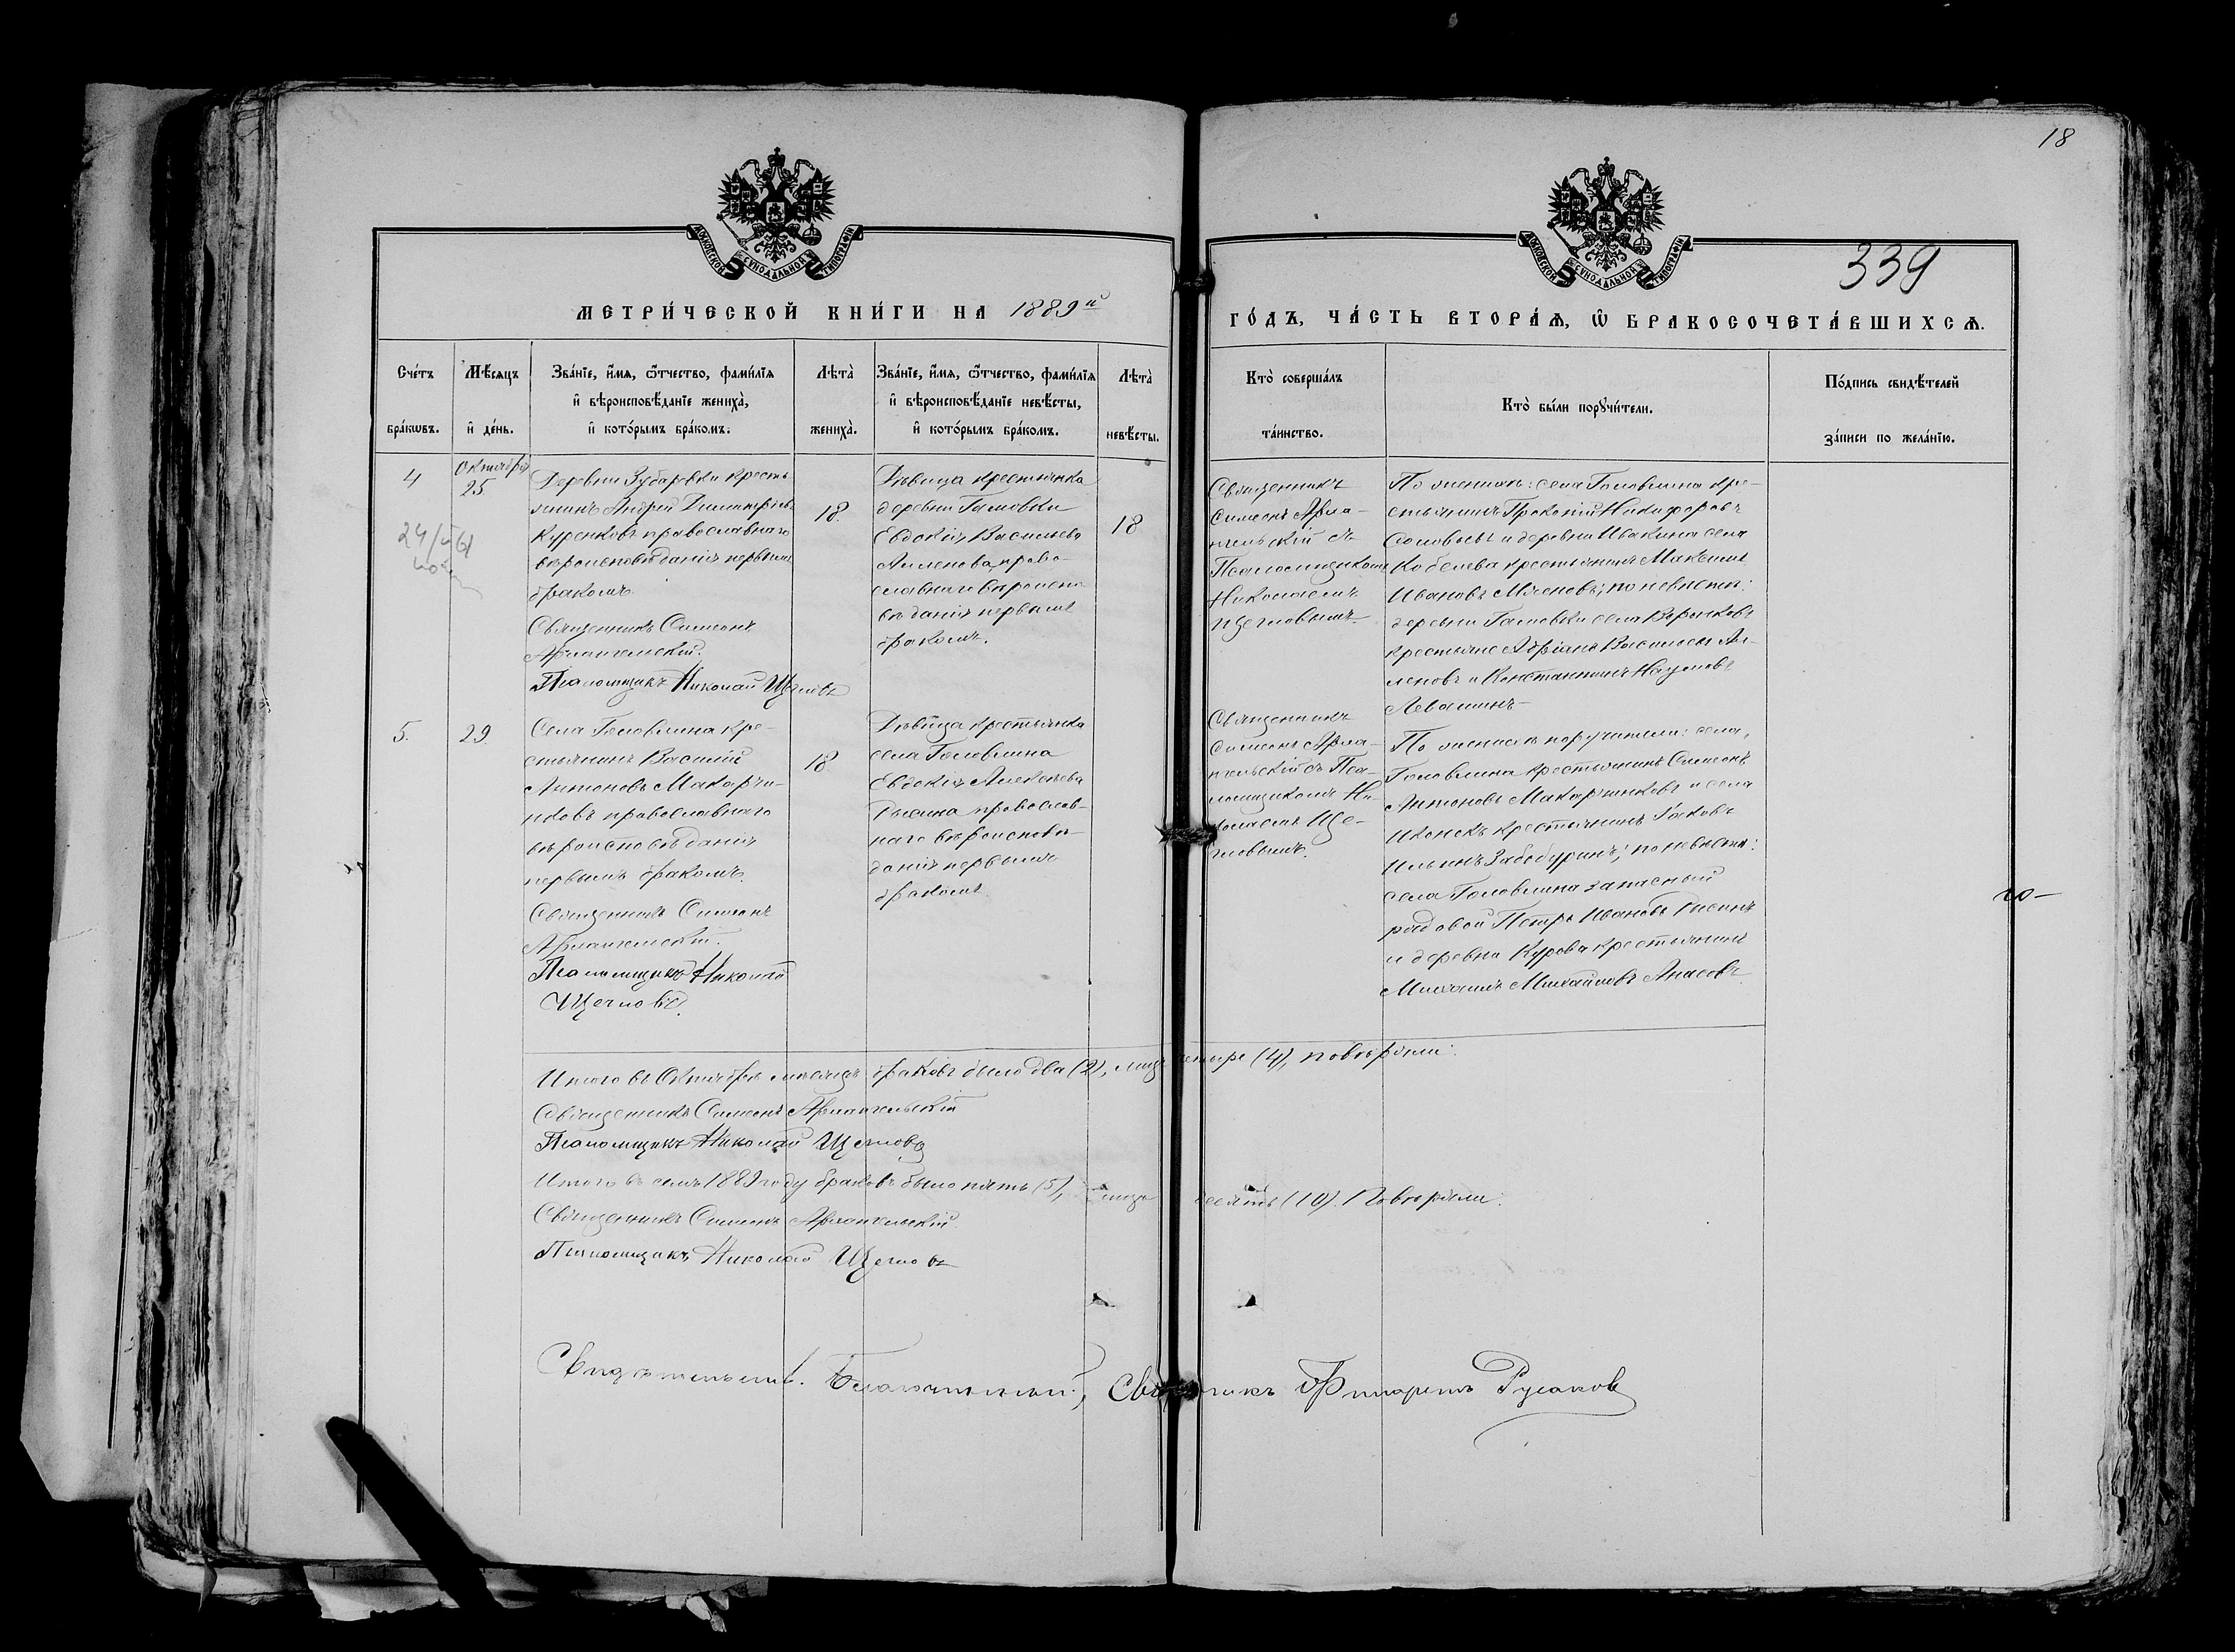 18
339
МОСКОВСКОЙ СѴНОДАЛЬНОЙ ТИПОГРАФІИ
МОСКОВСКОЙ СѴНОДАЛЬНОЙ ТИПОГРАФІИ
МЕТРИ́ЧЕСКОЙ КНИ́ГИ НА 1889й
ГО́ДЪ, ЧА́СТЬ ВТОРА́Ѧ, Ѡ҆ БРАКОСОЧЕТА́ВШИХСѦ.
Сче́тъ бра́кѡвъ.
Мѣ́сѧцъ и҆ де́нь.
Зва́нїе, и҆́мѧ, ѻ҆́тчество, фами́лїѧ
и҆ вѣроисповѣ́данїе жениха̀,
и҆ кото́рымъ бра́комъ.
Лѣта̀ жениха̀.
Зва́нїе, и҆́мѧ, ѻ҆́тчество, фами́лїѧ
и҆ вѣроисповѣ́данїе невѣ́сты,
и҆ кото́рымъ бра́комъ.
Лѣта̀ невѣ́сты.
Кто̀ соверша́лъ
та́инство.
Кто̀ бы́ли порꙋчи́тели.
По́дпись свидѣ́телей
за́писи по жела́нїю.
4
Октября
25
Деревни Зубаревки кресть
янинъ Андрей Димитріевъ
Куренковъ православнаго
вѣроисповѣданія первымъ
бракомъ.
Священникъ Симеонъ
Архангельскій.
Псаломщикъ Николай Щегловъ
18.
Дѣвица крестьянка
деревни Гамовки
Евдокія Васильева
Амленова, право-
славнаго вѣроиспо
вѣданія первымъ
бракомъ.
18
Священникъ
Симеонъ Арха-
нгельскій съ
Псаломщикомъ
Николаемъ
Щегловымъ
По женихѣ: села Головлина кре-
стьянинъ Прокопій Никифоровъ
Соловьевъ и деревни Ивакина села
Кобелева крестьянинъ Максимъ
Ивановъ; по невѣстѣ:
деревни Гамовки села
крестьяне Адріанъ Васильевъ Ам-
леновъ и Константинъ Наумовъ
Левашинъ
5.
29.
Села Головлина кре-
стьянинъ Василій
Антоновъ Макарчи-
нковъ православнаго
вѣроисповѣданія
первымъ бракомъ.
Священникъ Симеонъ
Архангельскій.
Псаломщикъ Николай
Щегловъ.
18
Дѣвица крестьянка
села Головлина
Евдокія Алексѣева
православ-
наго вѣроисповѣ-
данія первымъ
бракомъ.
Священникъ
Симеонъ Арха-
нгельскій съ Пса-
ломщикомъ Ни-
колаемъ Ще-
гловымъ.
По женихѣ поручители: села
Головлина крестьянинъ Симеонъ
Антоновъ Макарчинковъ и села
крестьянинъ Іаковъ
Ильинъ; по невѣстѣ:
села Головлина запасный
рядовой Петръ Ивановъ
и деревни Курова крестьянинъ
Михаилъ Михайловъ
Итого въ Октябрѣ мѣсяцѣ браковъ было два (2), лицъ четыре (4), повѣряли:
Священникъ Симеонъ Архангельскій
Псаломщикъ Николай Щегловъ
Итого въ семъ 1889 году браковъ было пять (5), лицъ десять (10). Повѣряли:
Священникъ Симеонъ Архангельскій.
Псаломщикъ Николай Щегловъ
Благочинный, Священникъ Филаретъ Русаковъ